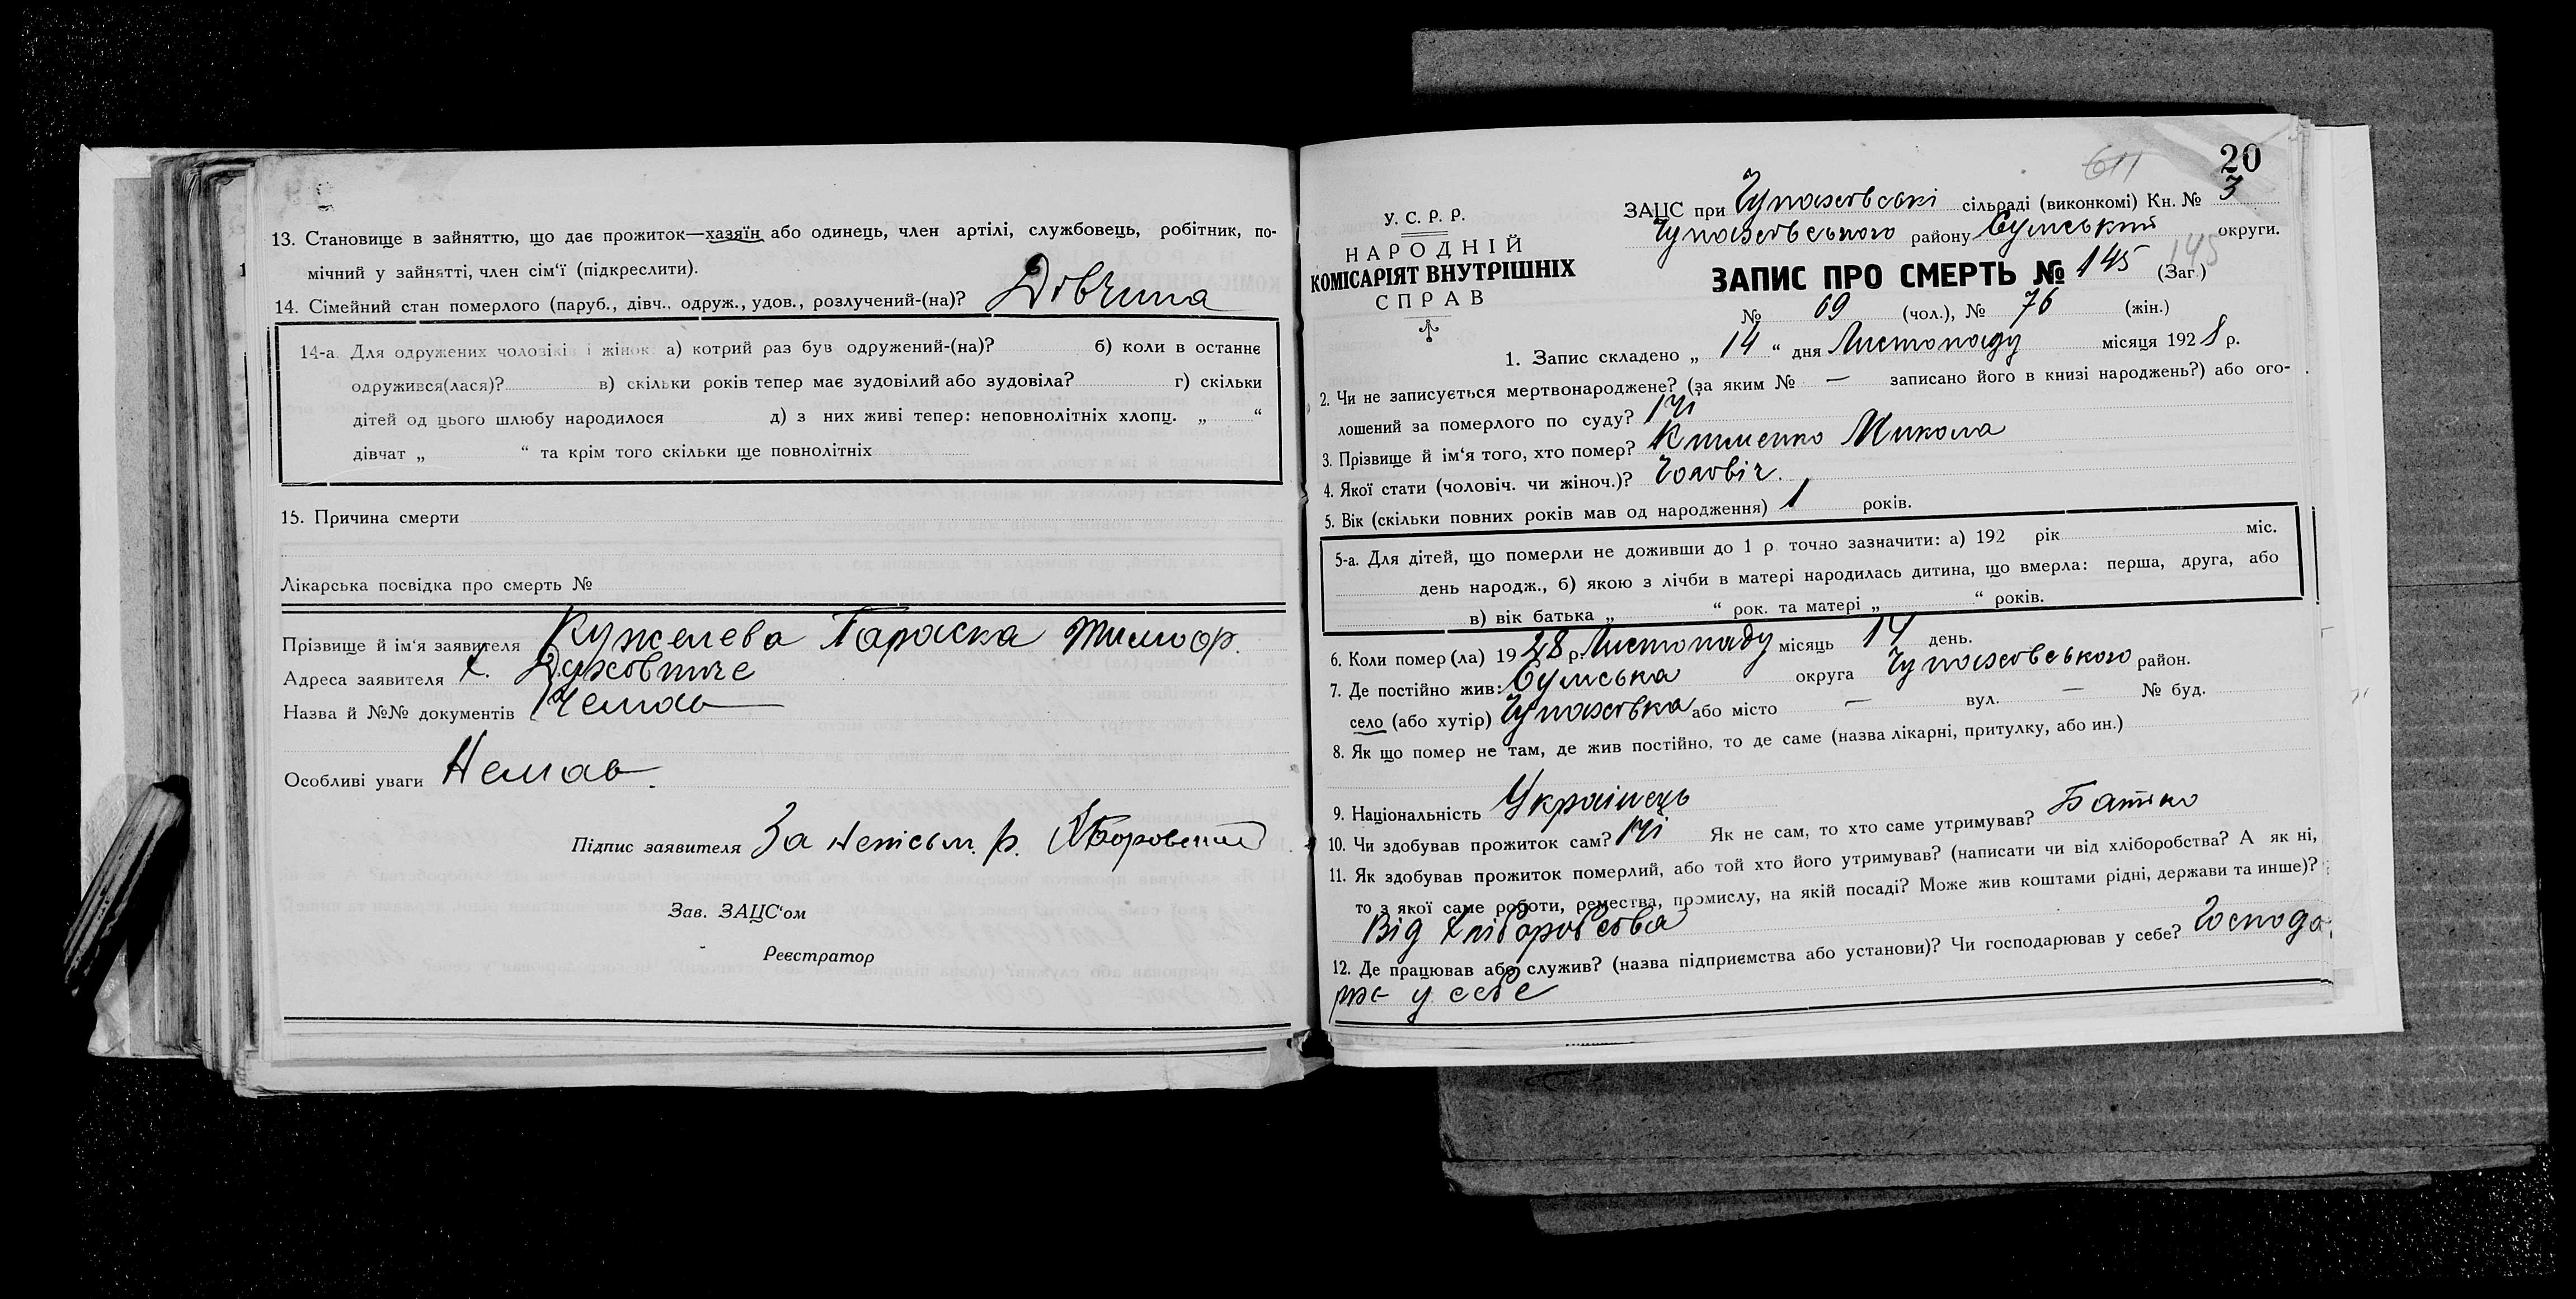 13. Становище в зайняттю, що дає прожиток—хазяїн або одинець, член артілі, службовець, робітник, по-
мічний у зайнятті, член сім'ї (підкреслити).
14. Сімейний стан померлого (паруб., дівч., одруж., удов., розлучений-(на)? Дівчина
14-а. Для одружених чоловіків і жінок: а) котрий раз був одружений-(на)? б) коли в останнє
одружився(лася)? в) скільки років тепер має зудовілий або зудовіла? г) скільки
дітей од цього шлюбу народилося д) з них живі тепер: неповнолітніх хлопц. „ “
дівчат „ “ та крім того скільки ще повнолітніх
15. Причина смерти
Лікарська посвідка про смерть №
Прізвище й ім'я заявителя Кужелева Параска
Адреса заявителя х. Духовниче
Назва й №№ документів Немає
Особливі уваги Немає.
Підпис заявителя За непісьм. р.
Зав. ЗАЦС'ом
Реєстратор
611
20
У. С. Р. Р.
НАРОДНІЙ
КОМІСАРІЯТ ВНУТРІШНІХ
СПРАВ
ЗАЦС при Чупахівські сільраді (виконкомі) Кн. № 3
Чупахівського району Сумський округи.
ЗАПИС ПРО СМЕРТЬ № 145 (Заг.) 145
№ 69 (чол.), № 76 (жін.)
1. Запис складено „ 14 “ дня Листопаду місяця 1928 р.
2. Чи не записується мертвонароджене? (за яким № — записано його в книзі народжень?) або ого-
лошений за померлого по суду? Ні
3. Прізвище й ім'я того, хто помер? Клименко Микола
4. Якої стати (чоловіч. чи жіноч.)? Чоловіч.
5. Вік (скільки повних років мав од народження) 1 років.
5-а. Для дітей, що померли не доживши до 1 р. точно зазначити: а) 192 рік міс.
день народж., б) якою з лічби в матері народилась дитина, що вмерла: перша, друга, або
в) вік батька „ “ рок. та матері „ “ років.
6. Коли помер(ла) 1928 р. Листопаду місяць 14 день.
7. Де постійно жив: Сумська округа Чупахівського район.
село (або хутір) Чупахівка або місто — вул. — № буд.
8. Як що помер не там, де жив постійно, то де саме (назва лікарні, притулку, або ин.)
9. Національність Українець
10. Чи здобував прожиток сам? Ні Як не сам, то хто саме утримував? Батько
11. Як здобував прожиток померлий, або той хто його утримував? (написати чи від хліборобства? А як ні,
то з якої саме роботи, ремества, промислу, на якій посаді? Може жив коштами рідні, держави та инше)?
Від хліборобства
12. Де працював або служив? (назва підприємства або установи)? Чи господарював у себе? Господа-
рює у себе